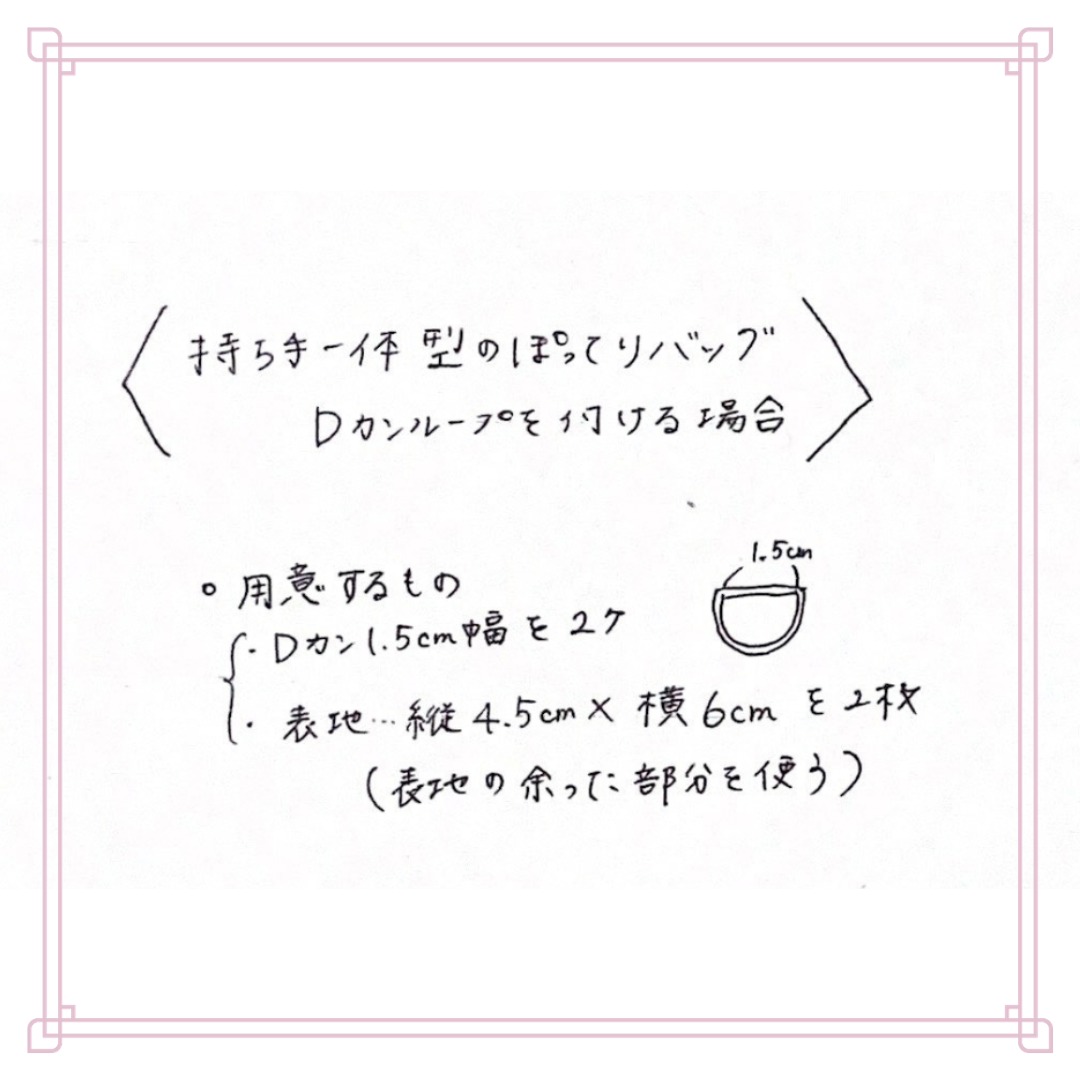 〈持ち手一体型のぽってりバッグ
Dカンループを付ける場合〉
1.5cm
○用意するもの
・Dカン1.5cm幅を2ケ
・表地…縦4.5cm×横6cmを2枚
(表地の余った部分を使う)